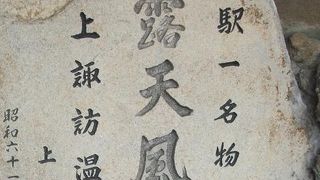 駅一名物
露天風
上諏訪温
上
昭和六十一